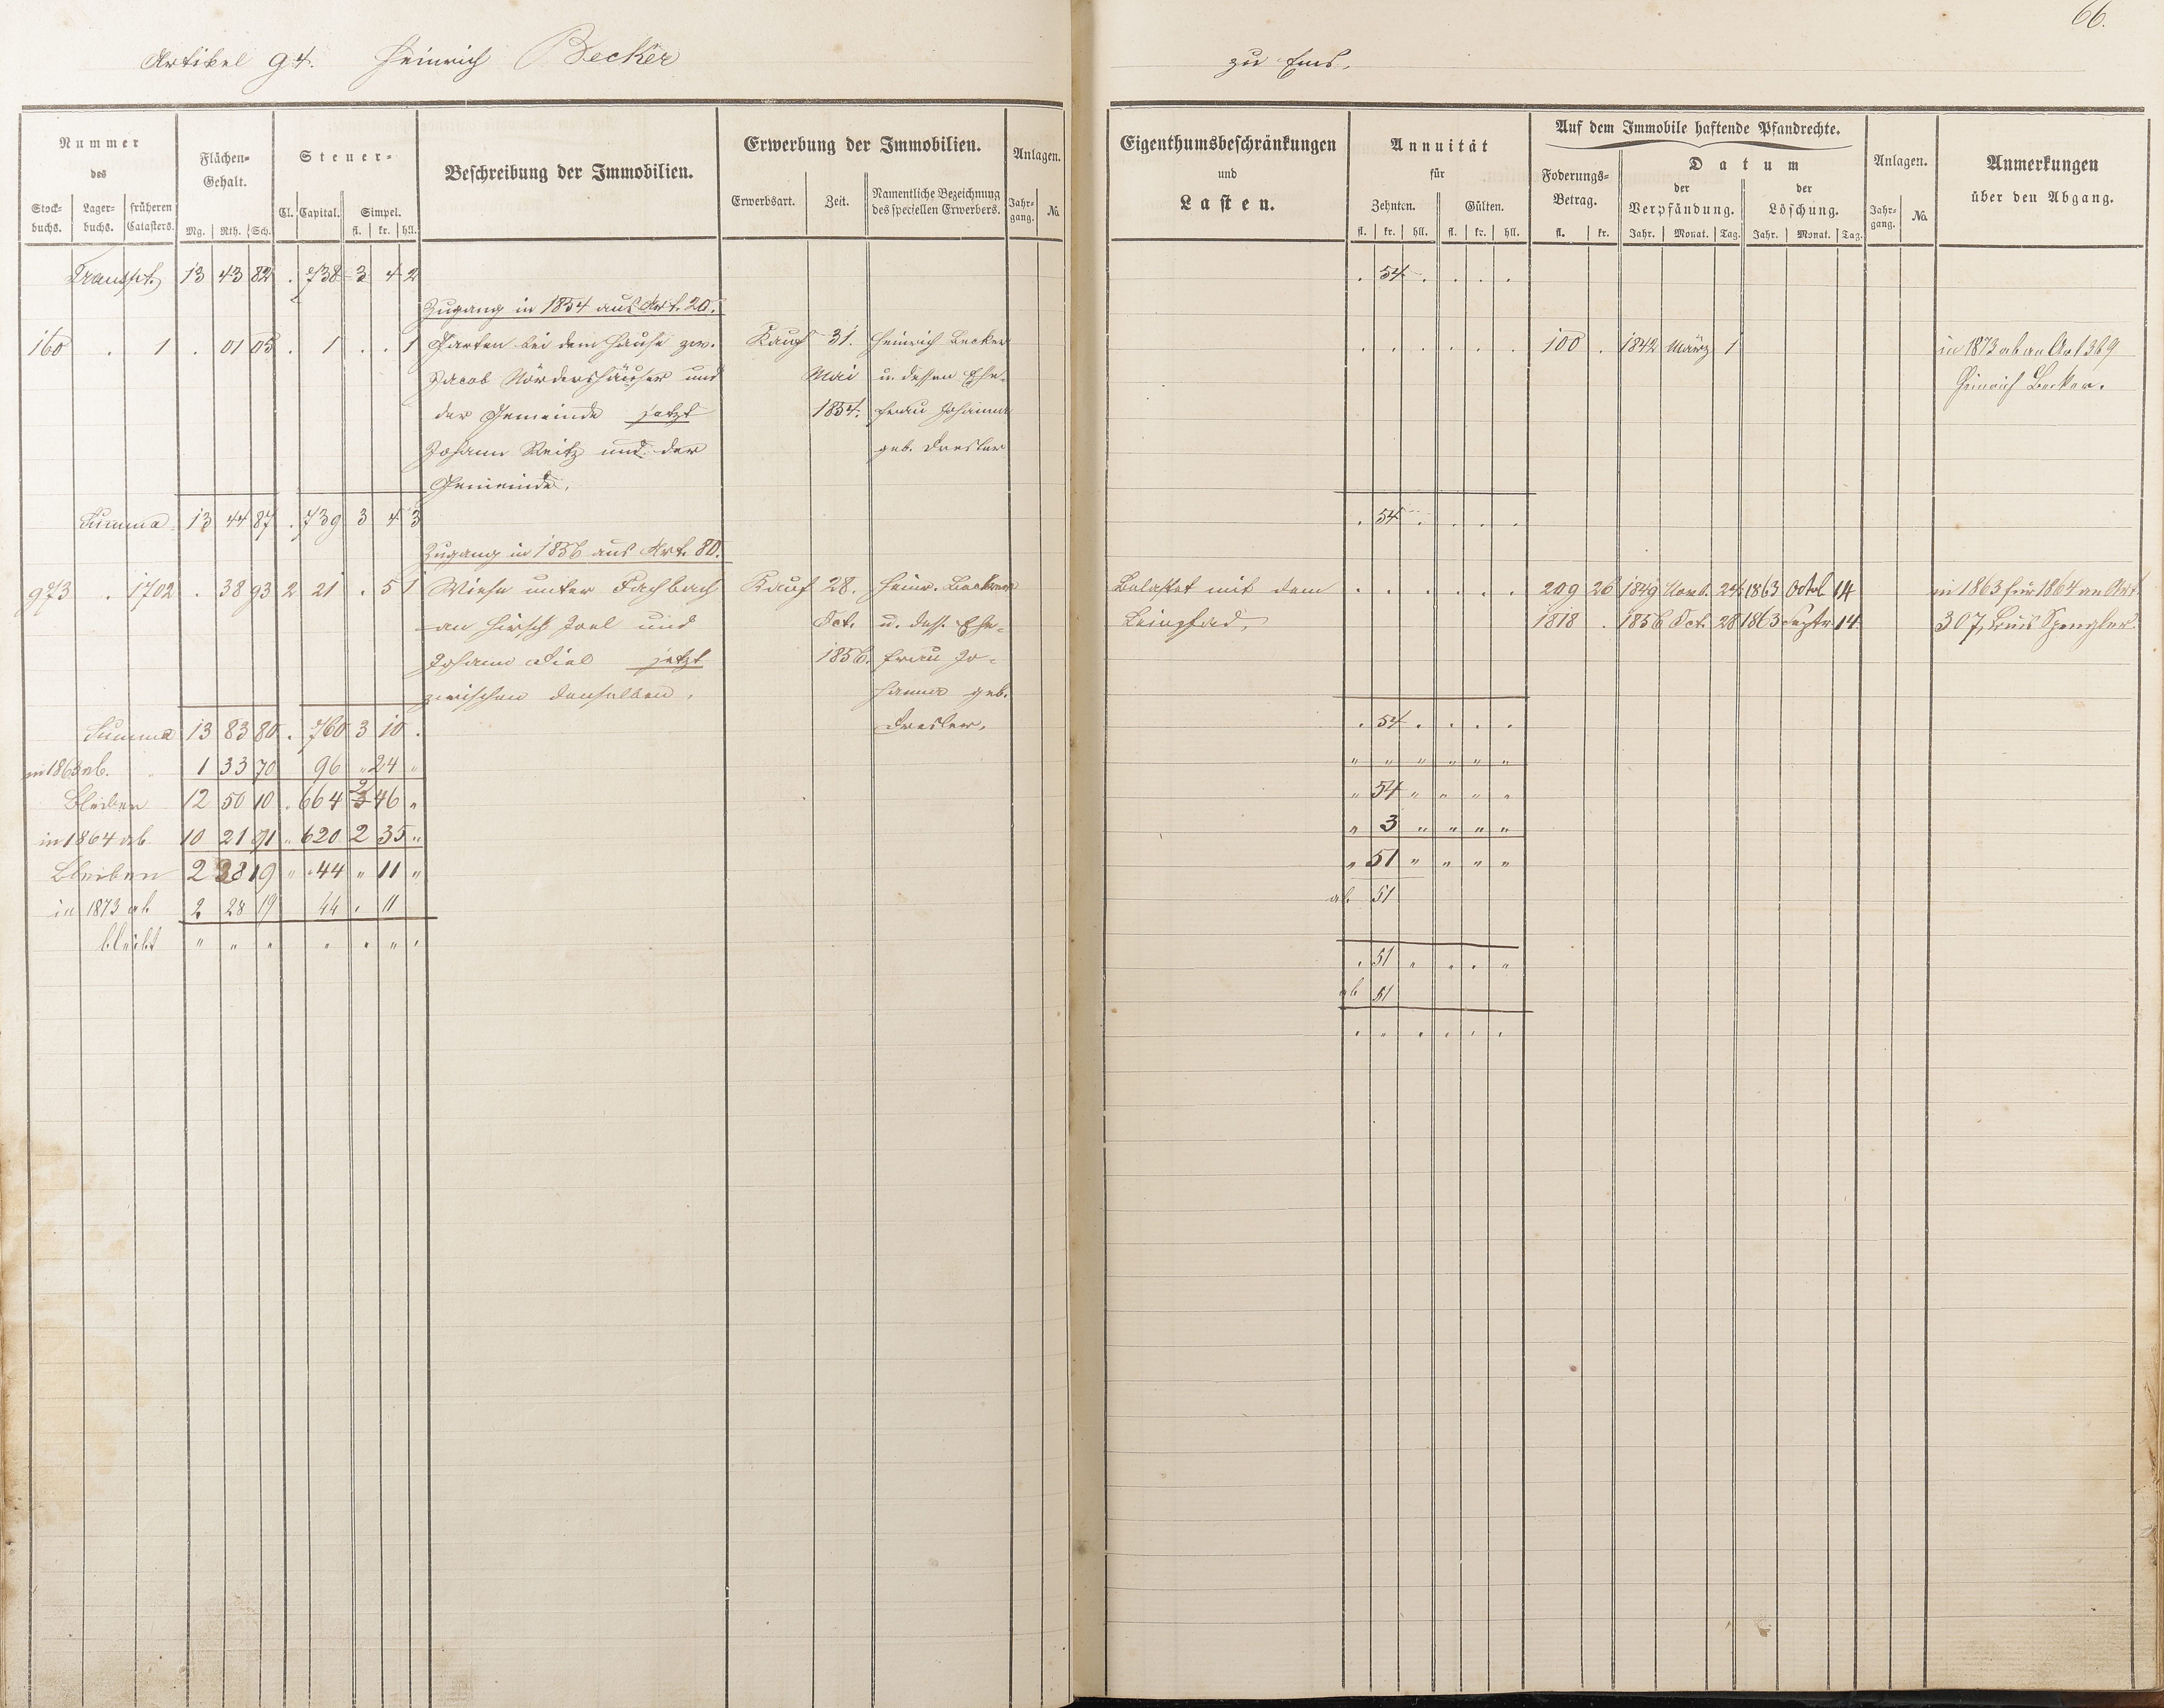 66.
Artikel 94. Heinrich Becker zu Ems.
Nummer des
Stock- buchs. Lager- buchs. früheren Catasters.
Flächen- Gehalt.
Mg. Rth. Sch.
Steuer-
Cl. Capital. Simpel.
fl. kr. hll.
Beschreibung der Immobilien.
Erwerbung der Immobilien.
Erwerbsart. Zeit. Namentliche Bezeichnung des speciellen Erwerbers.
Anlagen.
Jahr- gang. No.
Eigenthumsbeschränkungen
und
Lasten.
Annuität
für
Zehnten. Gülten.
fl. kr. hll. fl. kr. hll.
Auf dem Immobile haftende Pfandrechte.
Foderungs- Betrag.
fl. kr.
Datum
der Verpfändung. der Löschung.
Jahr. Monat. Tag. Jahr. Monat. Tag.
Anlagen.
Jahr- gang. No.
Anmerkungen
über den Abgang.
Transpt. 13 43 82 . 738 3 4 2 . 54 . . . .
Zugang in 1854 aus Art. 20.
160 . 1 . 01 05 . 1 . . 1 Garten bei dem Hause zw. Kauf 31. Heinrich Becker . . . . . . 100 . 1842 März 1 in 1873 ab an Art 369
Jacob Nördershäuser und Mai u. dessen Ehe- Heinrich Becker.
der Gemeinde jetzt 1854. frau Johanna
Johann Reitz und der geb. Dresler
Gemeinde.
Summa 13 44 87 . 739 3 4 3 . 54 . . . .
Zugang in 1856 aus Art. 80.
973 . 1702 . 38 93 2 21 . 5 1 Wiese unter Fachbach Kauf 28. Heinr. Becker Belastet mit dem . . . . . . 209 26 1849 Novb. 24 1863 Octob 14 in 1863 für 1864 an Art.
an Hirsch Joel und Oct. u. dess. Ehe- Leinpfad. 1818 . 1856 Oct. 28 1863 Septr. 14 307, Louis Spengler.
Johann Diel jetzt 1856. frau Jo-
zwischen denselben. hanna geb.
Summa 13 83 80 . 760 3 10 . Dresler. . 54 . . . .
in 1863 ab. 1 33 70 96 " 24 " " " " " " "
Bleiben 12 50 10 . 664 2 46 " " 54 " " " "
in 1864 ab 10 21 91 " 620 2 35 " " 3 " " " "
Bleiben 2 28 19 " 44 " 11 " " 51 " " " "
in 1873 ab 2 28 19 44 . 11 ab 51
bleibt " " " " " " "
. 51 " . . "
ab 51
. " . . . .